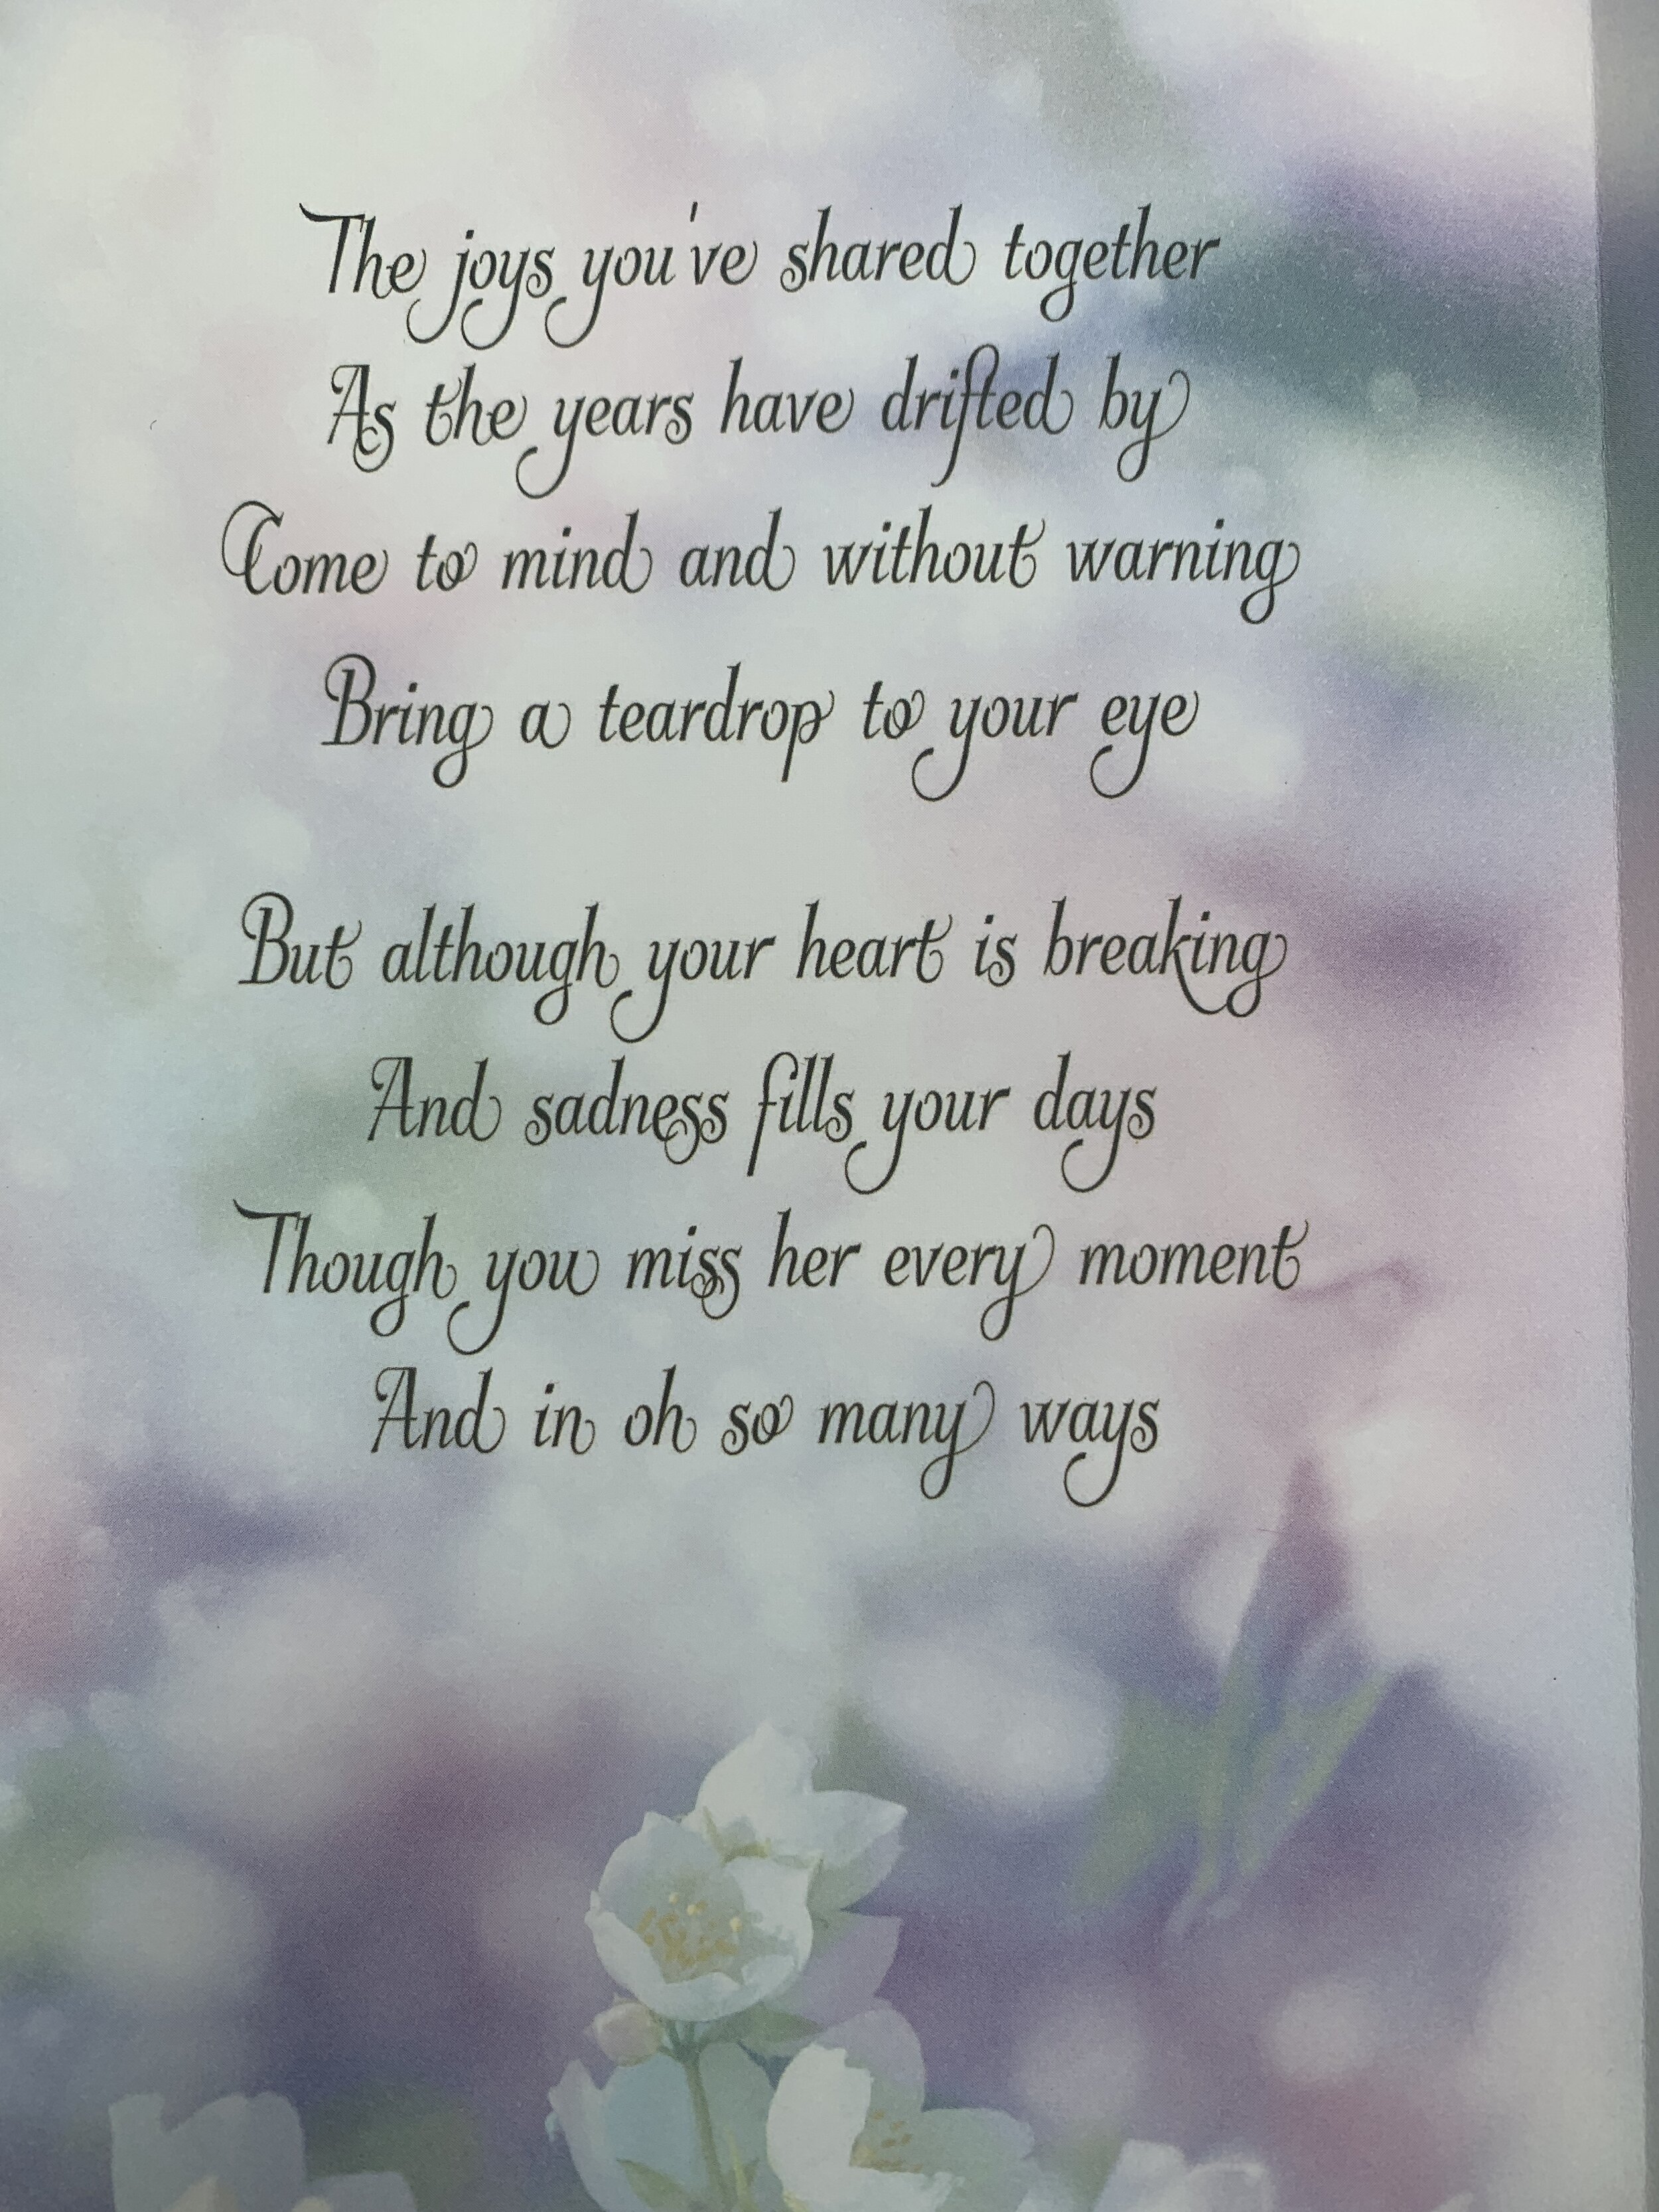 The joys you've shared together
As the years have drifted by
Come to mind and without warning
Bring a teardrop to your eye
But although your heart is breaking
And sadness fills your days
Though you miss her every moment
And in oh so many ways